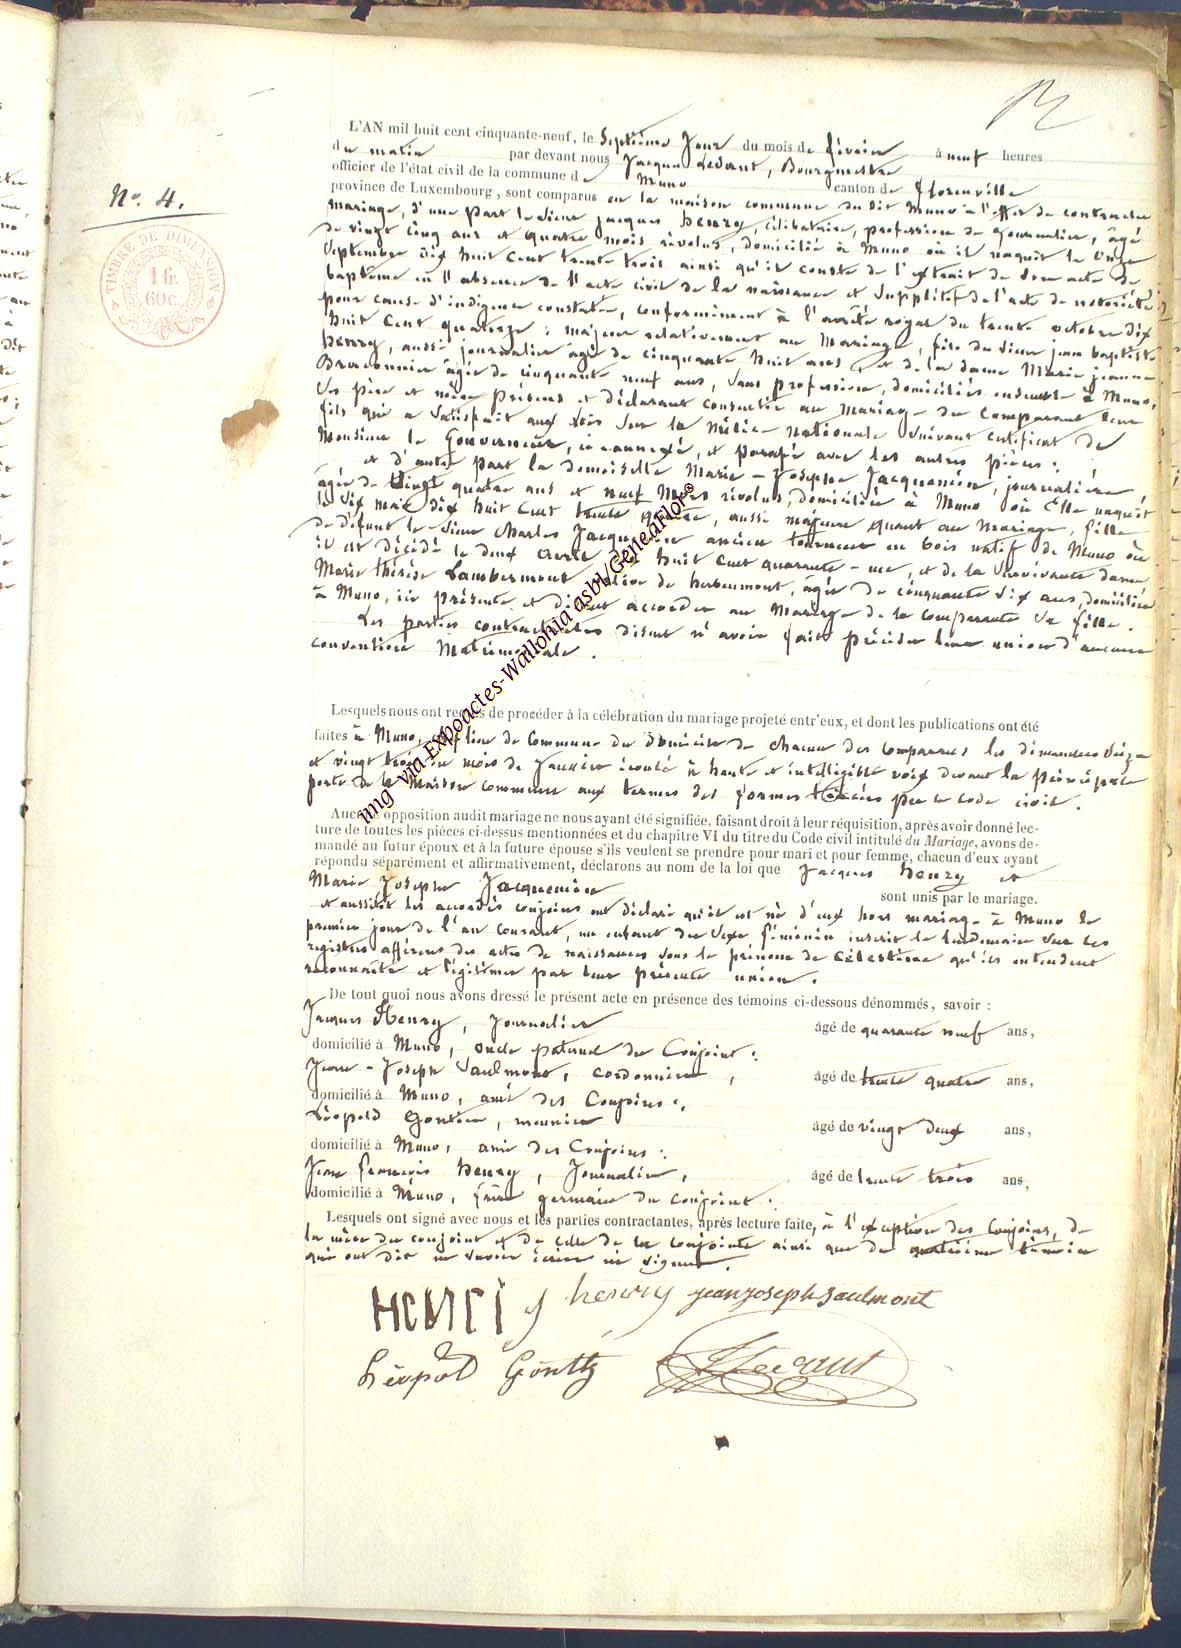 No. 4.
TIMBRE DE DIMENSION
1 fr.
60 c.
L'AN mil huit cent cinquante-neuf, le Septième Jour du mois de février à neuf heures
du matin par devant nous Jacques Ledant, Bourgmestre
officier de l'état civil de la commune de Muno canton de Florenville
province de Luxembourg, sont comparus en la maison commune du dit Muno à l'effet de contracter
mariage, d'une part le Sieur Jacques henry, célibataire, profession de Journalier, âgé
de vingt cinq ans et quatre mois révolus, domicilié à Muno où il naquit le onze
Septembre dix huit Cent trente trois ainsi qu'il conste de l'extrait de son acte de
baptême en l'absence de l'acte civil de la naissance et Supplétif de l'acte de notoriété
pour cause d'indigence constatée, conformément à l'arrêté royal du trente octobre dix
huit Cent quatorze ; majeur relativement au Mariage, fils du Sieur jean baptiste
henry, aussi journalier âgé de cinquante huit ans et de la dame Marie jeanne
Braconnier âgée de cinquante neuf ans, Sans profession, domiciliés ensemble à Muno,
Ses père et mère présens et déclarant consentir au Mariage du Comparant leur
fils qui a Satisfait aux lois Sur la Milice nationale Suivant certificat de
Monsieur le Gouverneur, ici annexé, et paraphé avec les autres pièces ;
et d'autre part la demoiselle Marie-Josephe Jacquemin, journalière,
âgée de Vingt quatre ans et neuf Mois révolus, domiciliée à Muno où Elle naquit
le dix mai dix huit Cent trente quatre, aussi majeure quant au Mariage, fille
de défunt le Sieur Charles Jacquemin ancien tourneur en bois natif de Muno où
il est décédé le deux avril dix huit Cent quarante-un, et de la Survivante dame
Marie thérèse Lambermont native de herbeumont, âgée de cinquante Six ans, domiciliée
à Muno, ici présente et disant accorder au Mariage de la comparante Sa fille.
Les parties contractantes disent n'avoir fait précéder leur union d'aucune
convention Matrimoniale.
Lesquels nous ont requis de procéder à la célébration du mariage projeté entr'eux, et dont les publications ont été
faites à Muno, lieu de Commune du domicile de chacun des Comparants les dimanches Seize
et vingt trois du mois de Janvier écoulé à haute et intelligible voix devant la principale
porte de la Maison commune aux termes des formes tracées par le Code civil.
Aucune opposition audit mariage ne nous ayant été signifiée, faisant droit à leur réquisition, après avoir donné lec-
ture de toutes les pièces ci-dessus mentionnées et du chapitre VI du titre du Code civil intitulé du Mariage, avons de-
mandé au futur époux et à la future épouse s'ils veulent se prendre pour mari et pour femme, chacun d'eux ayant
répondu séparément et affirmativement, déclarons au nom de la loi que Jacques henry et
Marie Josephe Jacquemin sont unis par le mariage.
et aussitôt les accordés conjoins ont déclaré qu'il est né d'eux hors mariage à Muno le
premier jour de l'an courant, un enfant du Sexe féminin inscrit le lendemain Sur les
registres afférens des actes de naissances Sous le prénom de Célestine qu'ils entendent
reconnaître et légitimer par leur présente union.
De tout quoi nous avons dressé le présent acte en présence des témoins ci-dessous dénommés, savoir :
Jacques Henry, Journalier âgé de quarante neuf ans,
domicilié à Muno, oncle paternel du Conjoint ;
Jean-Joseph Saulmont, cordonnier, âgé de trente quatre ans,
domicilié à Muno, ami des Conjoins ;
Léopold Gontier, meunier âgé de vingt deux ans,
domicilié à Muno, ami des Conjoins ;
Jean françois henry, Journalier, âgé de trente trois ans,
domicilié à Muno, frère germain du conjoint ;
Lesquels ont signé avec nous et les parties contractantes, après lecture faite, à l'exception des Conjoins, de
la mère du conjoint et de celle de la conjointe ainsi que du quatrième témoin
qui ont dit ne savoir écrire ni signer.
HENRI J henry jean joseph Saulmont
Léopol
img via Expoactes-Wallonia asbl/GeneaFlor©